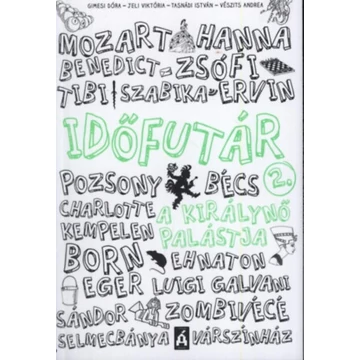 GIMESI DÓRA – JELI VIKTÓRIA – TASNÁDI ISTVÁN – VÉSZITS ANDREA
MOZART HANNA
BENEDICT ZSÓFI
TIBI SZABIKA ERVIN
IDŐFUTÁR
2.
POZSONY BÉCS
CHARLOTTE A KIRÁLYNŐ
KEMPELEN PALÁSTJA
BORN EHNATON
EGER LUIGI GALVANI
SÁNDOR ZOMBIVÉCÉ
SELMECBÁNYA VÁRSZÍNHÁZ